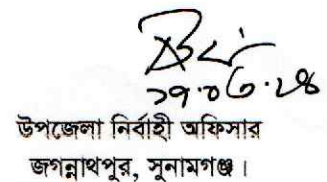 ২৭.০৩.২৪
উপজেলা নির্বাহী অফিসার
জগন্নাথপুর, সুনামগঞ্জ।